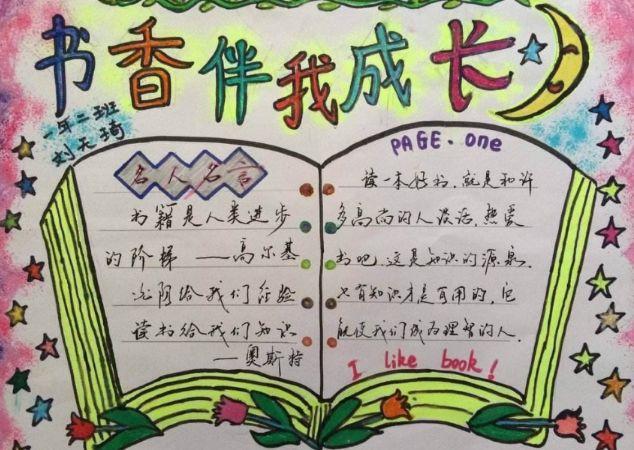 书香伴我成长
一年二班
刘天琦
名人名言
书籍是人类进步
的阶梯——高尔基
光阴给我们经验
读书给我们知识
——奥斯特
PAGE·one
读一本好书，就是和许
多高尚的人谈话，热爱
书吧，这是知识的源泉，
只有知识才是有用的，它
能使我们成为理智的人
I like book!